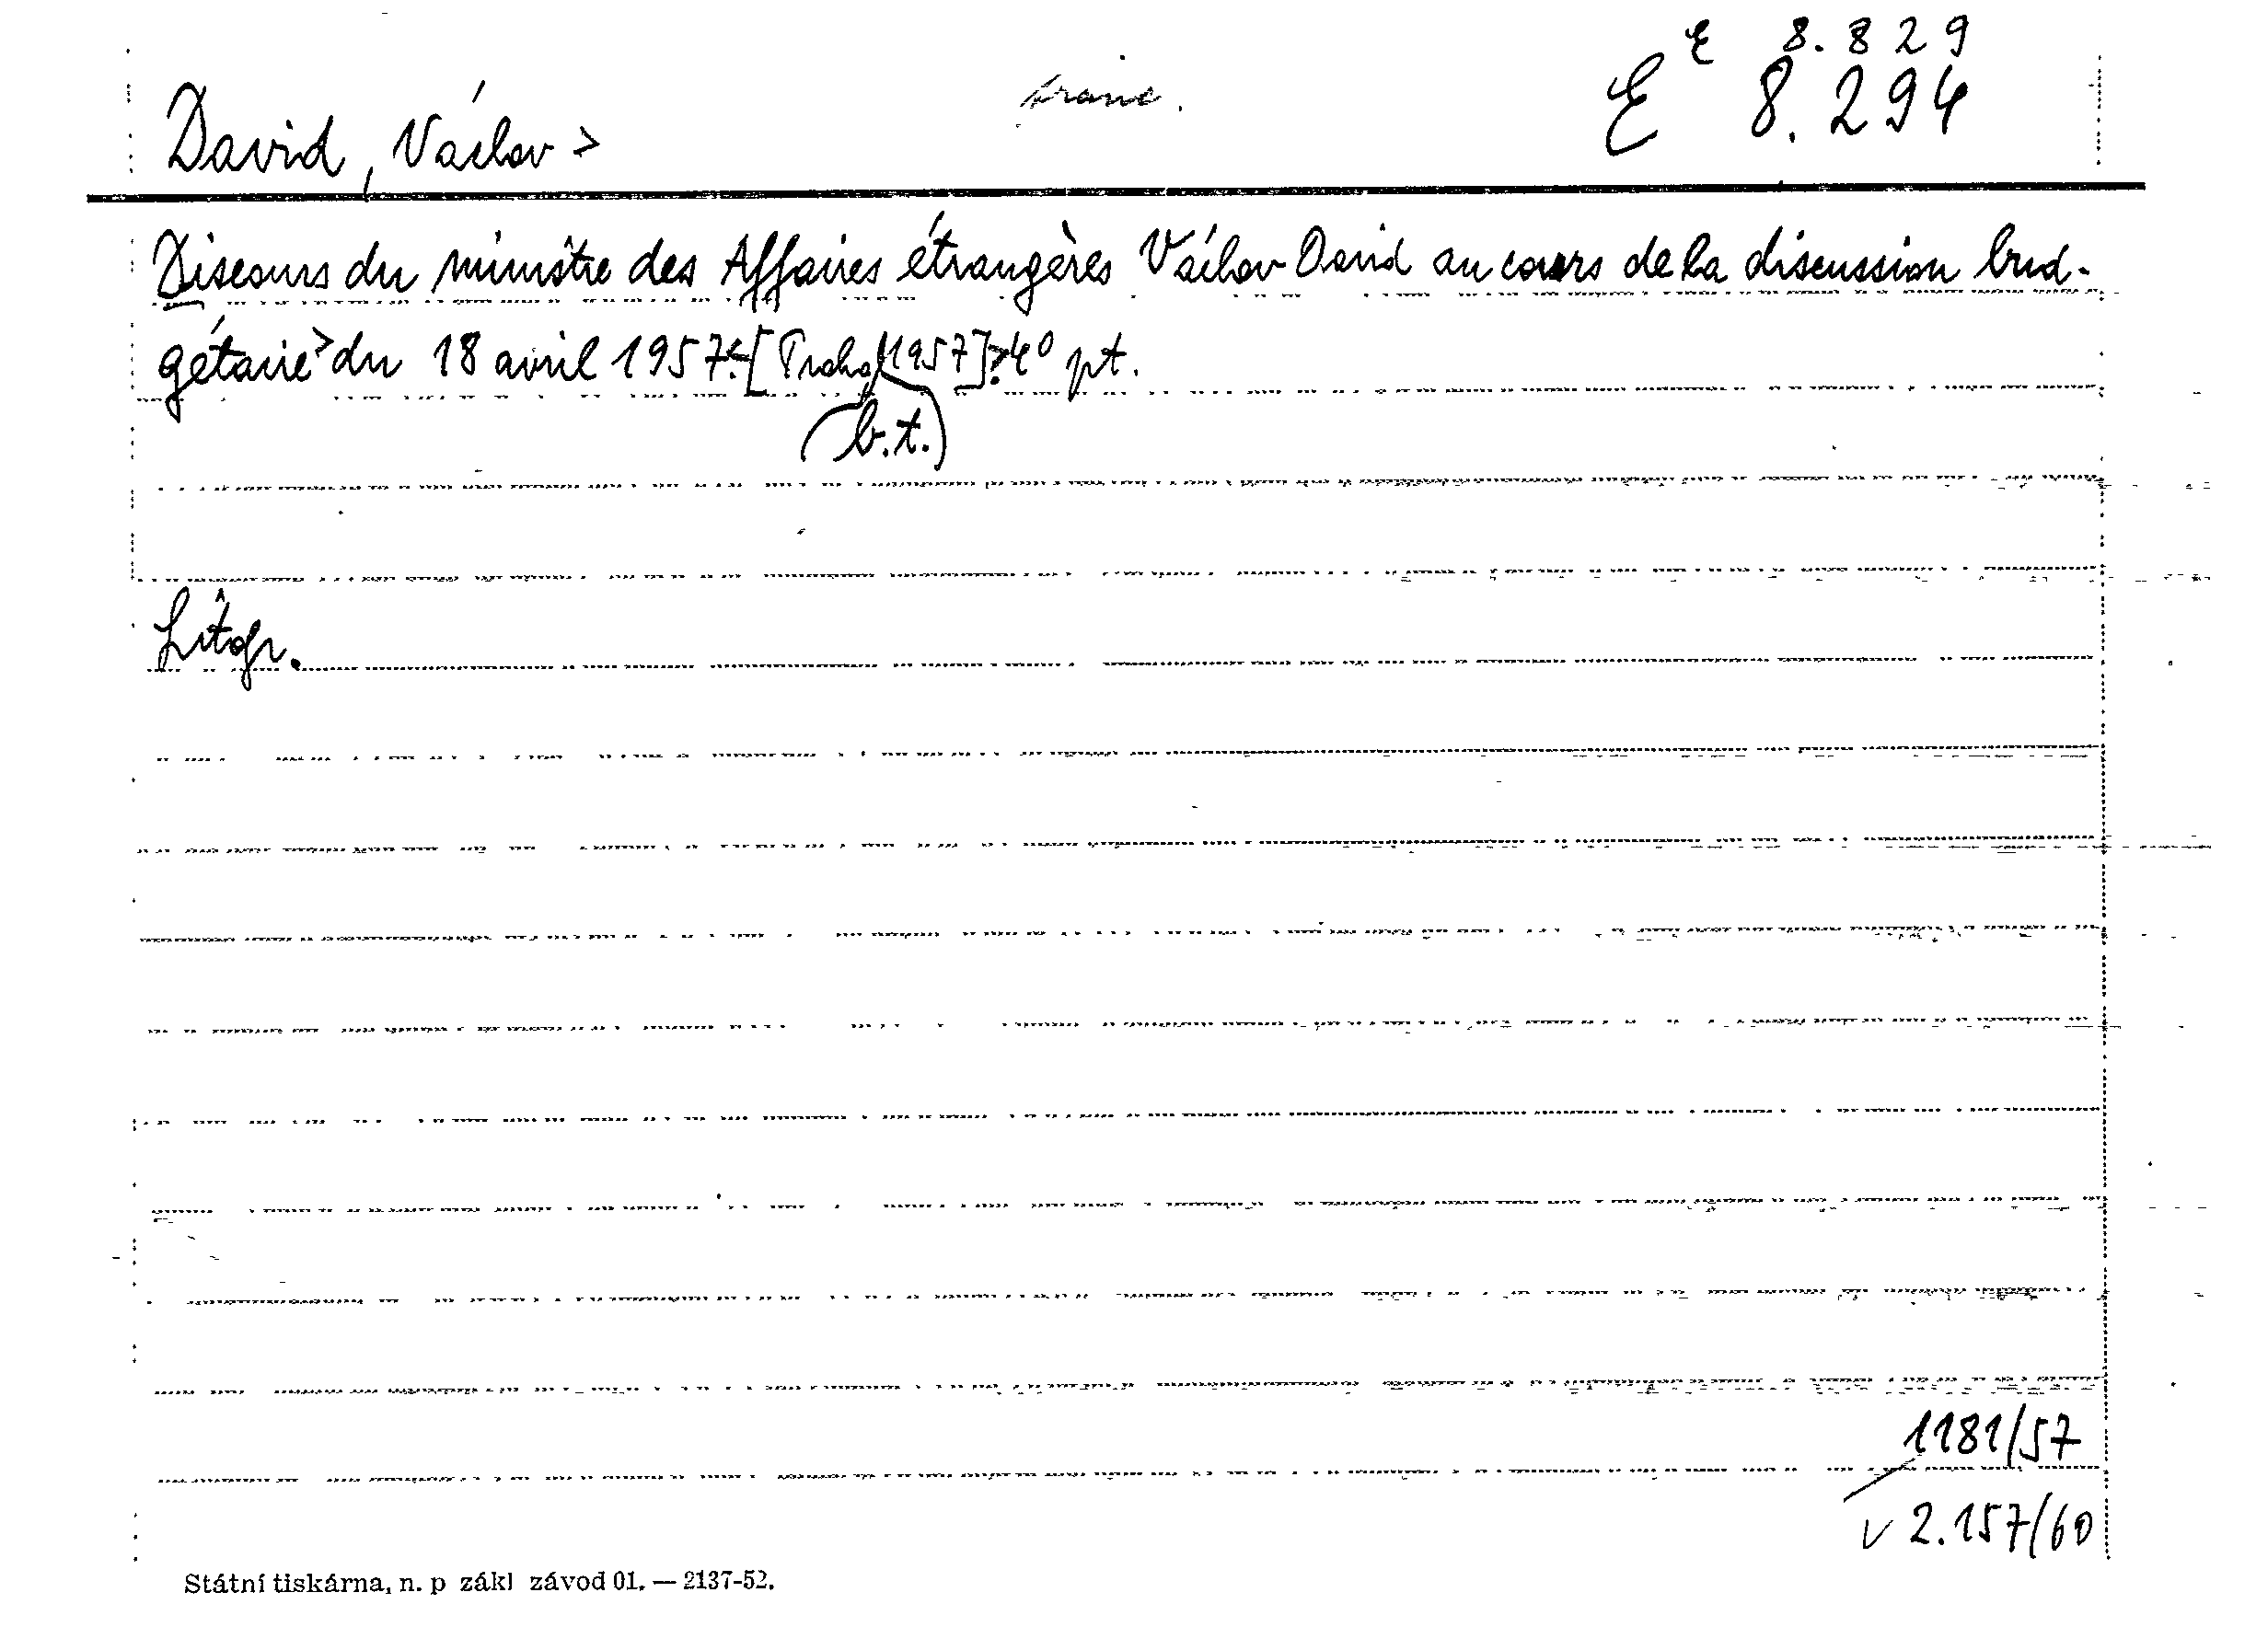 E 8.829
David, Václav >
franc.
E 8.294
Discours du ministre des Affaires étrangères Václav David au cours de la discussion bud-
gétaire > du 18 avril 1957. < [Praha (b.t.) 1957] > 4⁰ pt.
Litogr.
1181/57
v 2.157/60
Státní tiskárna, n. p zákl závod 01. — 2137-52.